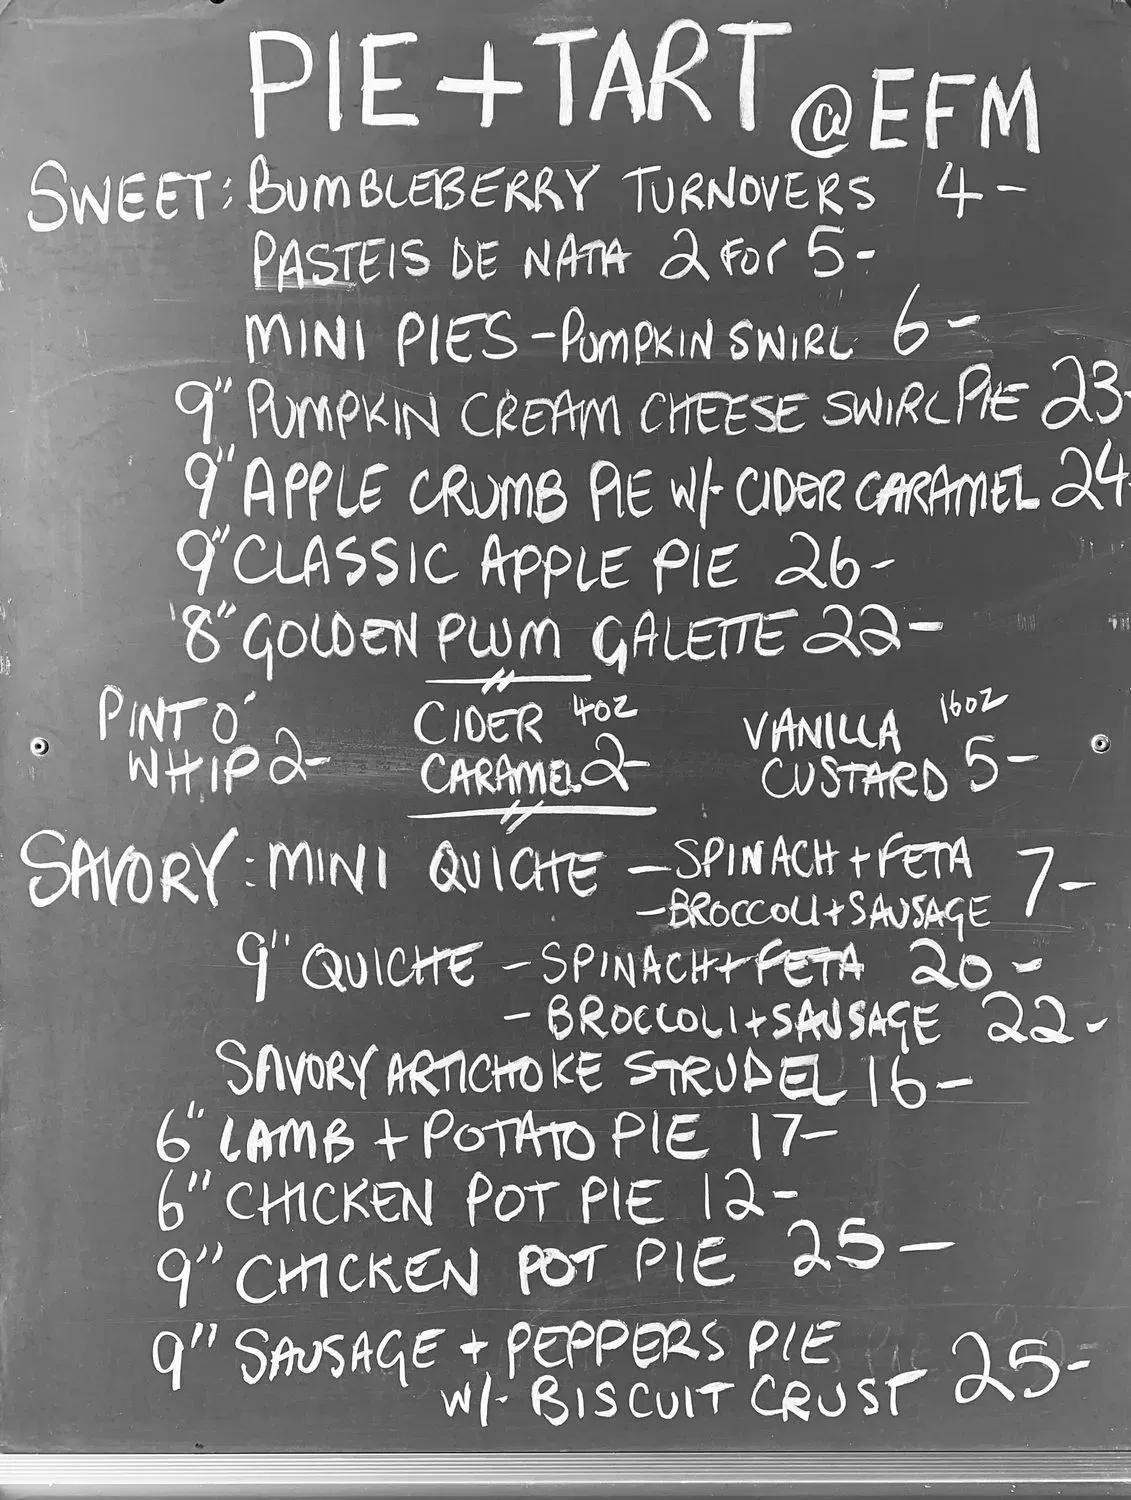 PIE + TART @ EFM
SWEET: BUMBLEBERRY TURNOVERS 4-
PASTEIS DE NATA 2 FOR 5-
MINI PIES - PUMPKIN SWIRL 6-
9" PUMPKIN CREAM CHEESE SWIRL PIE 23-
9" APPLE CRUMB PIE W/- CIDER CARAMEL 24-
9" CLASSIC APPLE PIE 26-
8" GOLDEN PLUM GALETTE 22-
PINT O' WHIP 2-
CIDER 4OZ
CARAMEL 2-
VANILLA 16OZ
CUSTARD 5-
SAVORY: MINI QUICHE - SPINACH + FETA 7-
- BROCCOLI + SAUSAGE
9" QUICHE - SPINACH + FETA 20-
- BROCCOLI + SAUSAGE 22-
SAVORY ARTICHOKE STRUDEL 16-
6" LAMB + POTATO PIE 17-
6" CHICKEN POT PIE 12-
9" CHICKEN POT PIE 25-
9" SAUSAGE + PEPPERS PIE
W/- BISCUIT CRUST 25-